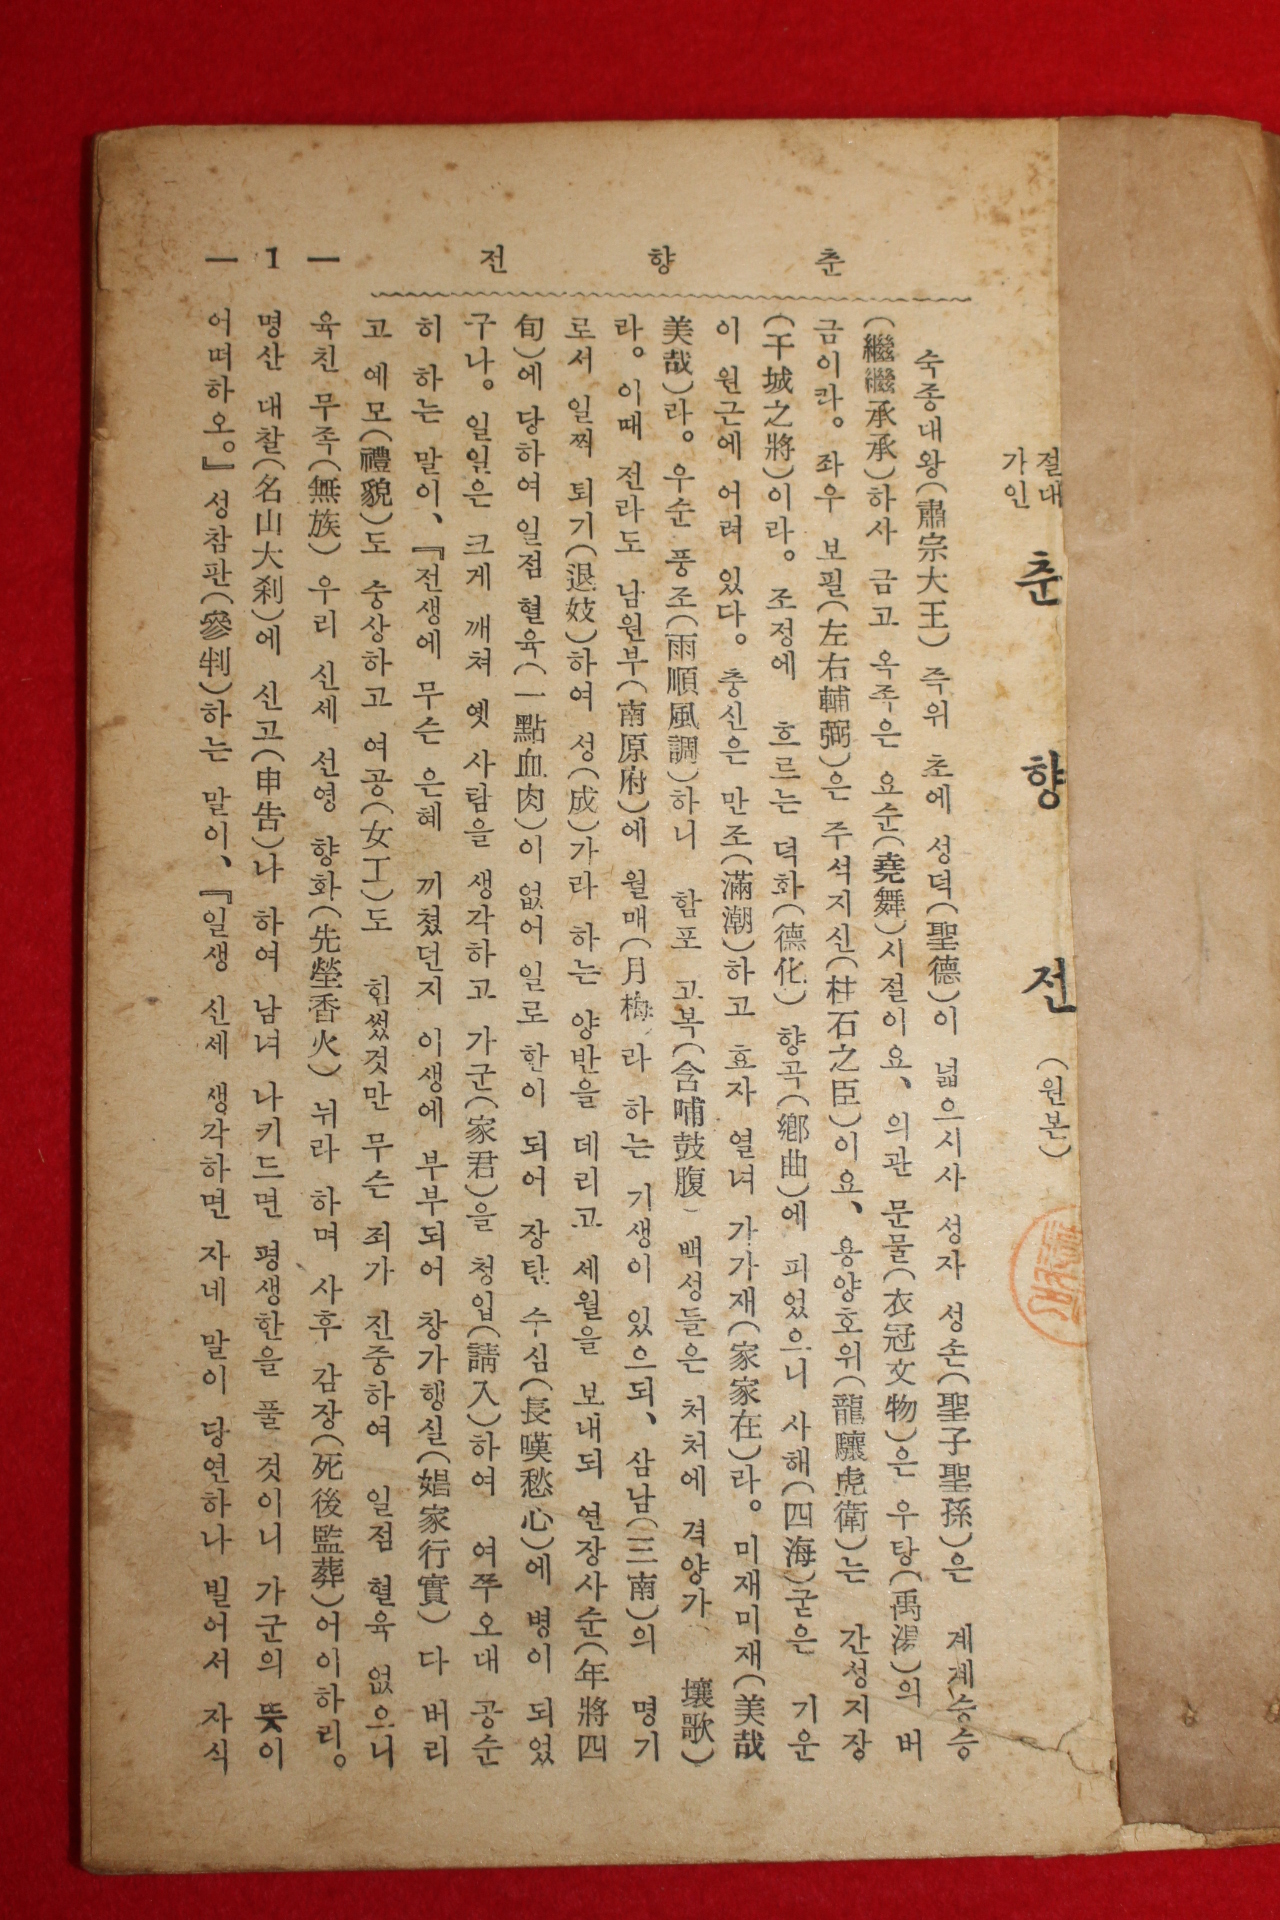 춘향전
— 1 —
절대
가인
춘향전 (원본)
숙종대왕(肅宗大王) 즉위 초에 성덕(聖德)이 넓으시사 성자 성손(聖子聖孫)은 계계승승
(繼繼承承)하사 금고 옥족은 요순(堯舞)시절이요、의관 문물(衣冠文物)은 우탕(禹湯)의 버
금이라。좌우 보필(左右輔弼)은 주석지신(柱石之臣)이요、용양호위(龍驤虎衛)는 간성지장
(干城之將)이라。조정에 흐르는 덕화(德化) 향곡(鄕曲)에 피었으니 사해(四海)굳은 기운
이 원근에 어려 있다。충신은 만조(滿潮)하고 효자 열녀 가가재(家家在)라。미재미재(美哉
美哉)라。우순 풍조(雨順風調)하니 함포 고복(含哺鼓腹) 백성들은 처처에 격양가 壤歌)
라。이때 전라도 남원부(南原府)에 월매(月梅 라 하는 기생이 있으되、삼남(三南)의 명기
로서 일찍 퇴기(退妓)하여 성(成)가라 하는 양반을 데리고 세월을 보내되 연장사순(年將四
旬)에 당하여 일점 혈육(一點血肉)이 없어 일로 한이 되어 장탄 수심(長嘆愁心)에 병이 되었
구나。일일은 크게 깨쳐 옛 사람을 생각하고 가군(家君)을 청입(請入)하여 여쭈오대 공순
히 하는 말이、『전생에 무슨 은혜 끼쳤던지 이생에 부부되어 창가행실(娼家行實) 다 버리
고 예모(禮貌)도 숭상하고 여공(女工)도 힘썼것만 무슨 죄가 진중하여 일점 혈육 없으니
육친 무족(無族) 우리 신세 선영 향화(先塋香火) 뉘라 하며 사후 감장(死後監葬)어이하리。
명산 대찰(名山大刹)에 신고(申告)나 하여 남녀 나키드면 평생한을 풀 것이니 가군의 뜻이
어떠하오。』성참판(參判)하는 말이、『일생 신세 생각하면 자네 말이 당연하나 빌어서 자식